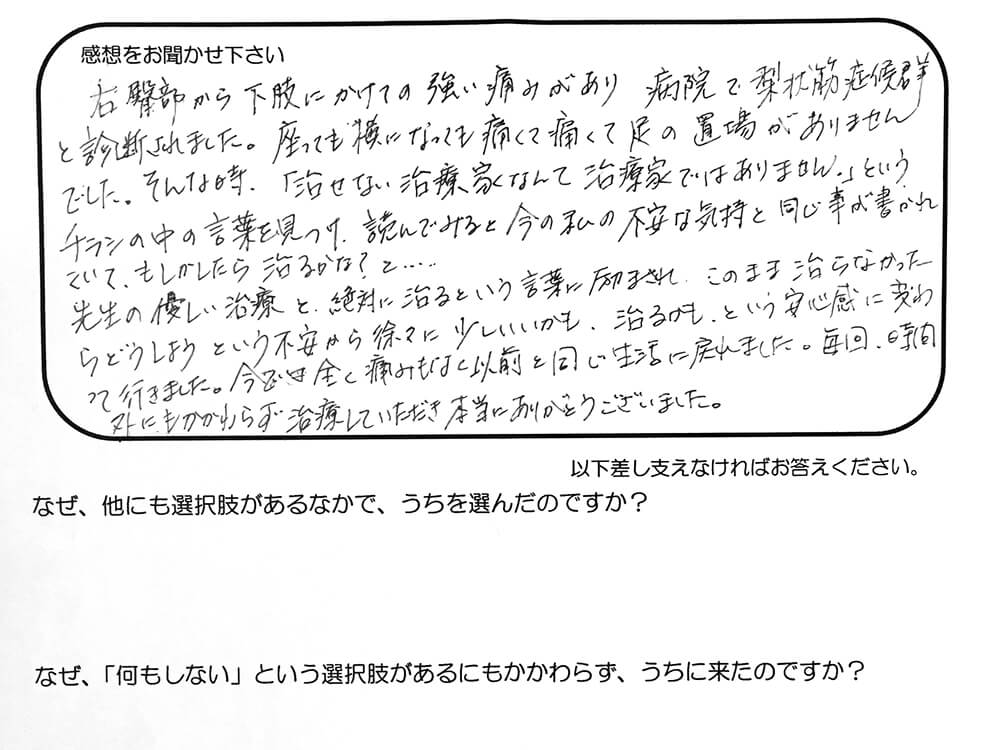 感想をお聞かせ下さい
右臀部から下肢にかけての強い痛みがあり 病院で梨状筋症候群
と診断されました。座っても横になっても痛くて痛くて足の置場がありません
でした。そんな時、「治せない治療家なんて治療家ではありません。」という
チラシの中の言葉を見つけ、読んでみると今の私の不安な気持と同じ事が書かれ
ていて、もしかしたら治るかな?と……
先生の優しい治療と、絶対に治るという言葉に励まされ、このまま治らなかった
らどうしようという不安から徐々に少しいいかも、治るかも、という安心感に変わ
って行きました。今では全く痛みもなく以前と同じ生活に戻れました。毎回、時間
外にもかかわらず治療していただき本当にありがとうございました。
以下差し支えなければお答えください。
なぜ、他にも選択肢があるなかで、うちを選んだのですか?
なぜ、「何もしない」という選択肢があるにもかかわらず、うちに来たのですか?